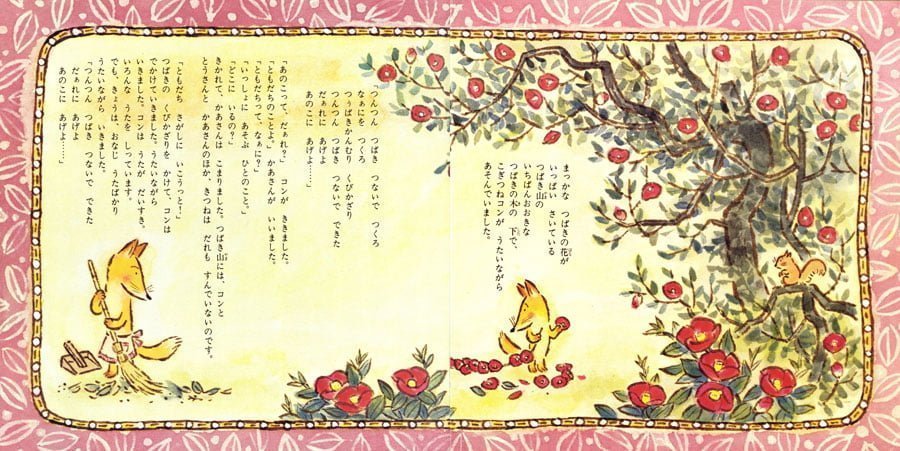 まっかな つばきの花が
いっぱい さいている
つばき山の
いちばんおおきな
つばきの木の 下で、
こぎつねコンが うたいながら
あそんでいました。
「つんつん つばき つないで つくろ
なぁにを つくろ
つぅばきかんむり くびかざり
つんつん つばき つないで できた
だぁれに あげよ
あのこに あげよ……」
「あのこって、だぁれ?」 コンが ききました。
「ともだちのことよ。」 かあさんが いいました。
「ともだちって、なぁに?」
「いっしょに あそぶ ひとのこと。」
「どこに いるの?」
きかれて、かあさんは こまりました。つばき山には、コンと
とうさんと かあさんのほか、きつねは だれも すんでいないのです。
「ともだち さがしに いこうっと!」
つばきの くびかざりを かけて、コンは
でかけていきました。うたいながら
いきました。コンは うたが だいすき。
いろんな うたを しっています。
でも、きょうは、おなじ うたばかり
うたいながら いきました。
「つんつん つばき つないで できた
だぁれに あげよ
あのこに あげよ……」